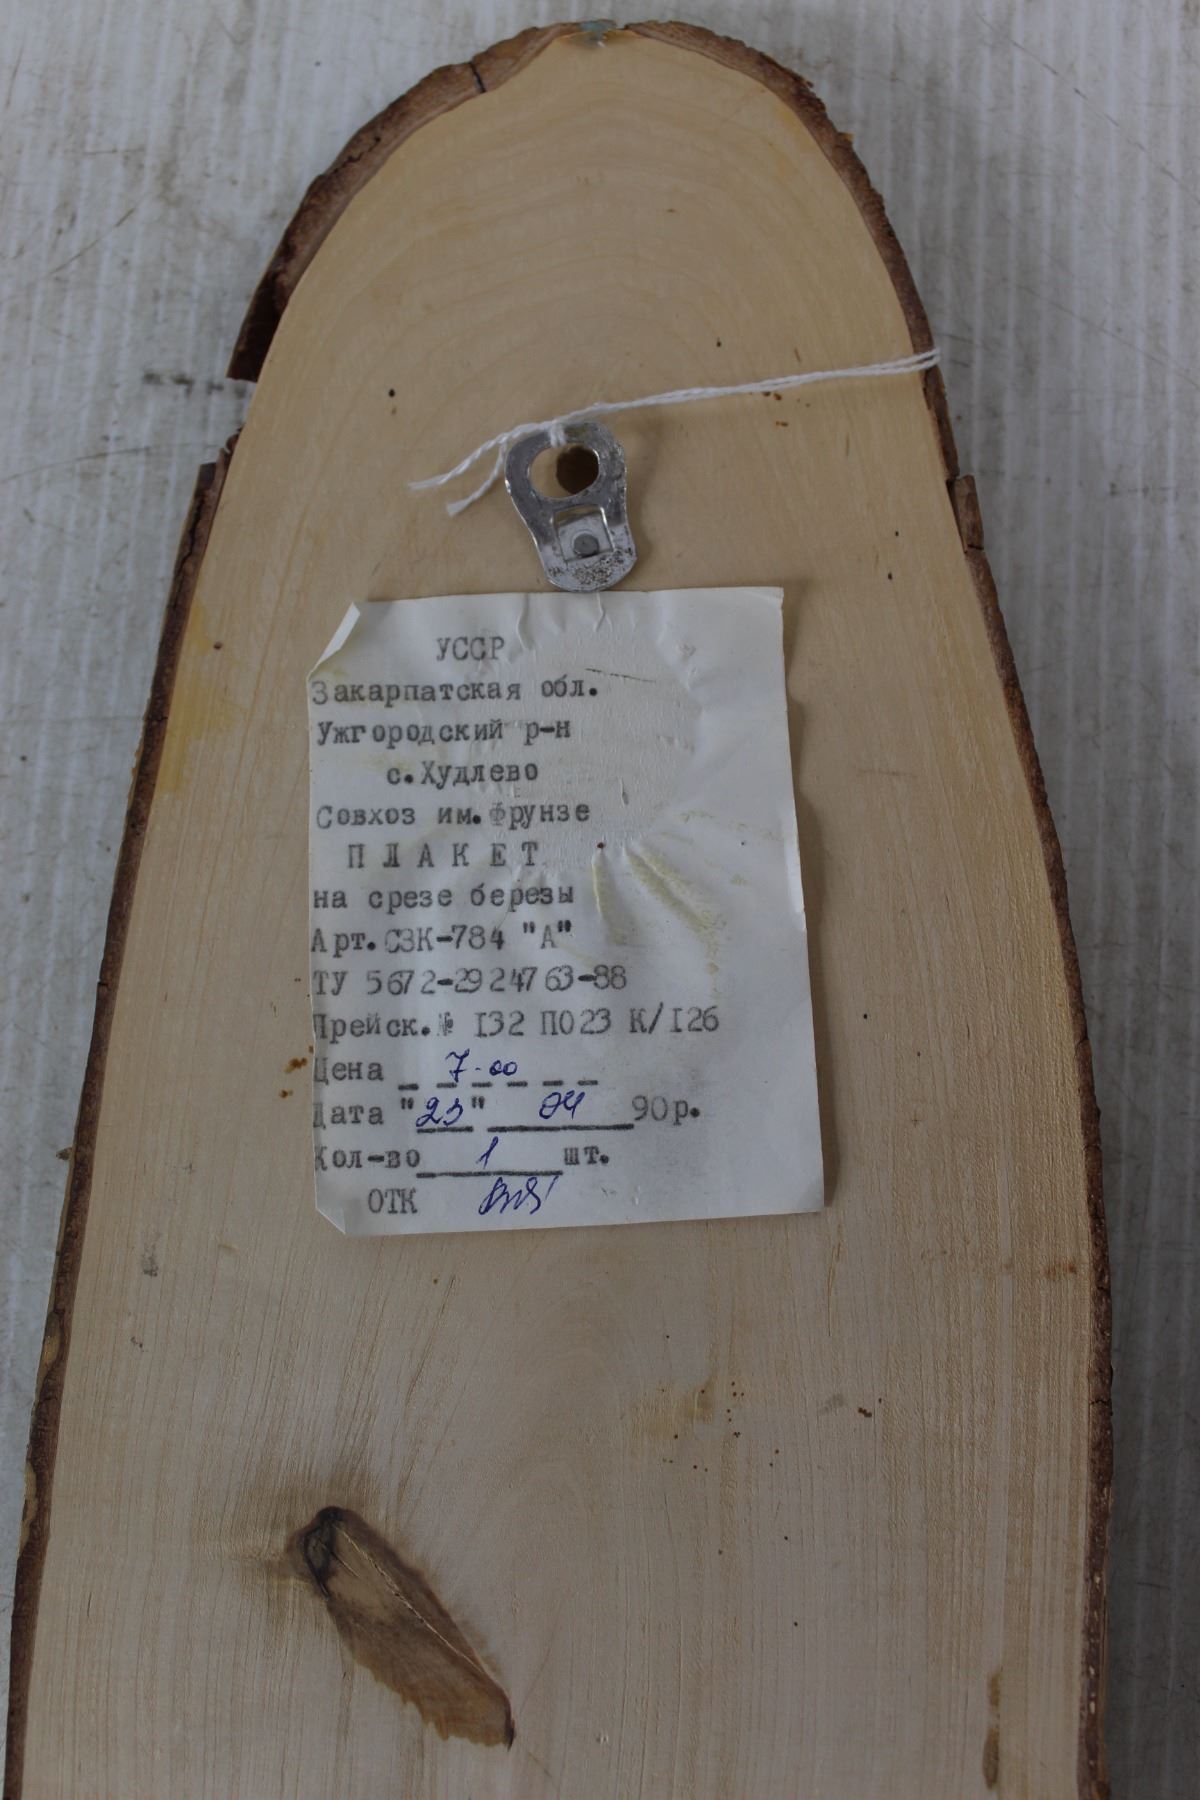 УССР
Закарпатская обл.
Ужгородский р-н
с.Худлево
Совхоз им.Фрунзе
ПЛАКЕТ
на срезе березы
Арт.СЗК-784 "А"
ТУ 5672-2924763-88
Прейск.№ I32 П023 К/I26
Цена 7-00
Дата "23" 04 90р.
Кол-во 1 шт.
ОТК